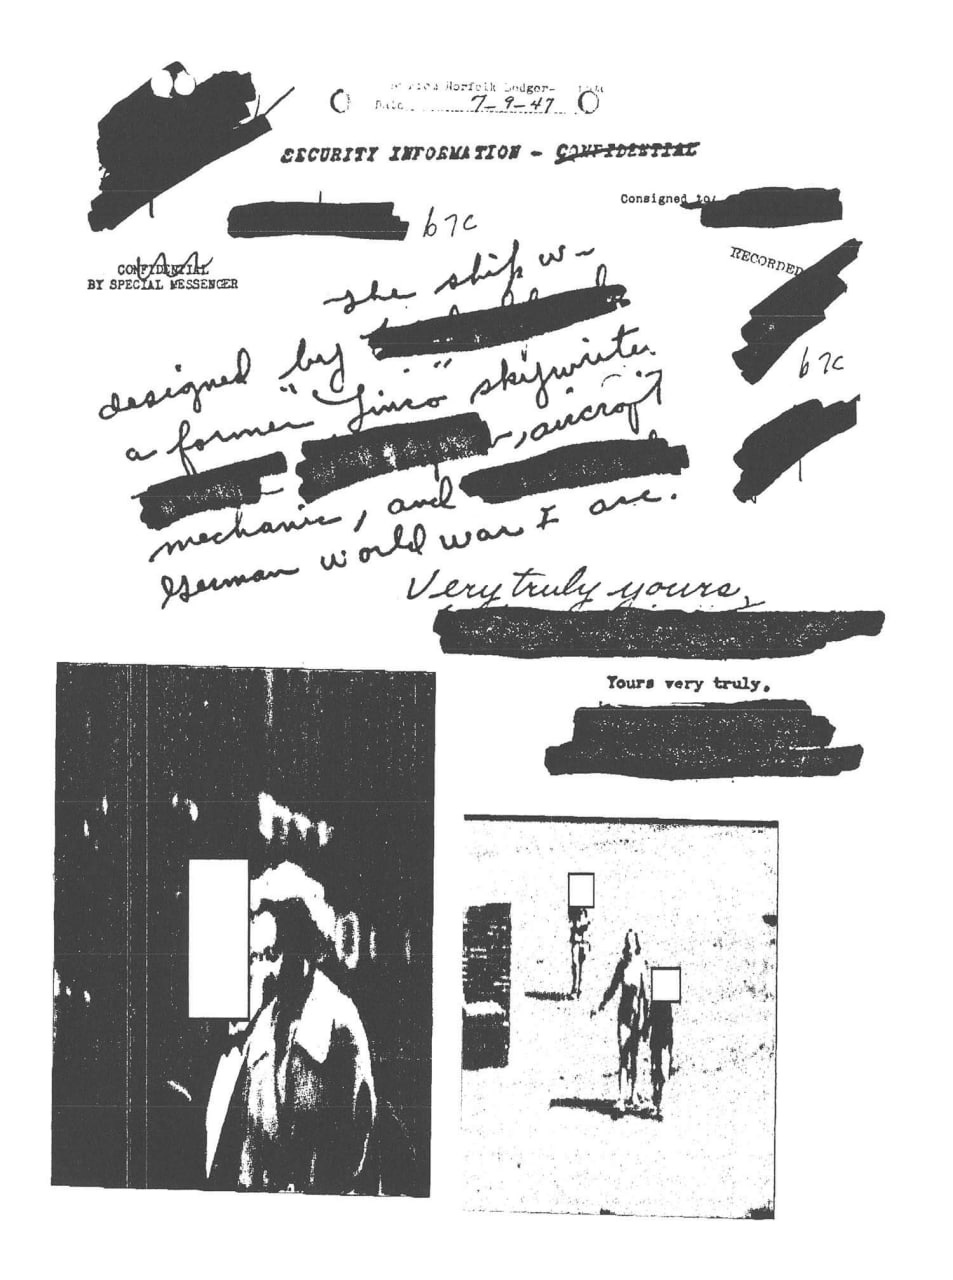 Norfolk Ledger-
Date 7-9-47
SECURITY INFORMATION - CONFIDENTIAL
Consigned to:
b7C
CONFIDENTIAL
BY SPECIAL MESSENGER
RECORDED
the ship w-
designed by
b7C
a former "Linco" skywriter
, aircraft
mechanic, and
German World War I ace.
Very truly yours,
Yours very truly,